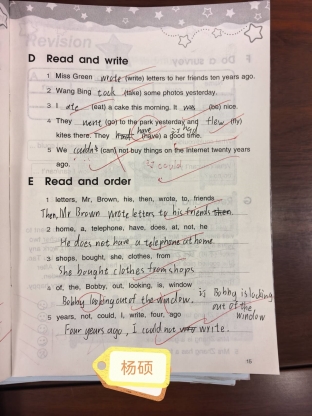 Revision
D Read and write
1 Miss Green wrote (write) letters to her friends ten years ago.
2 Wang Bing took (take) some photos yesterday.
3 I ate (eat) a cake this morning. It was (be) nice.
4 They went (go) to the park yesterday and flew (fly)
kites there. They have (have) a good time.
had
5 We couldn't (can) not buy things on the internet twenty years
ago.
could
E Read and order
1 letters, Mr, Brown, his, then, wrote, to, friends
Then, Mr Brown wrote letters to his friends then.
2 home, a, telephone, have, does, at, not, he
He does not have a telephone at home.
3 shops, bought, she, clothes, from
She bought clothes from shops
4 of, the, Bobby, out, looking, is, window
Bobby looking out of the window.
is Bobby is looking
out of the
window
5 years, not, could, I, write, four, ago
Four years ago, I could not write.
15
杨硕